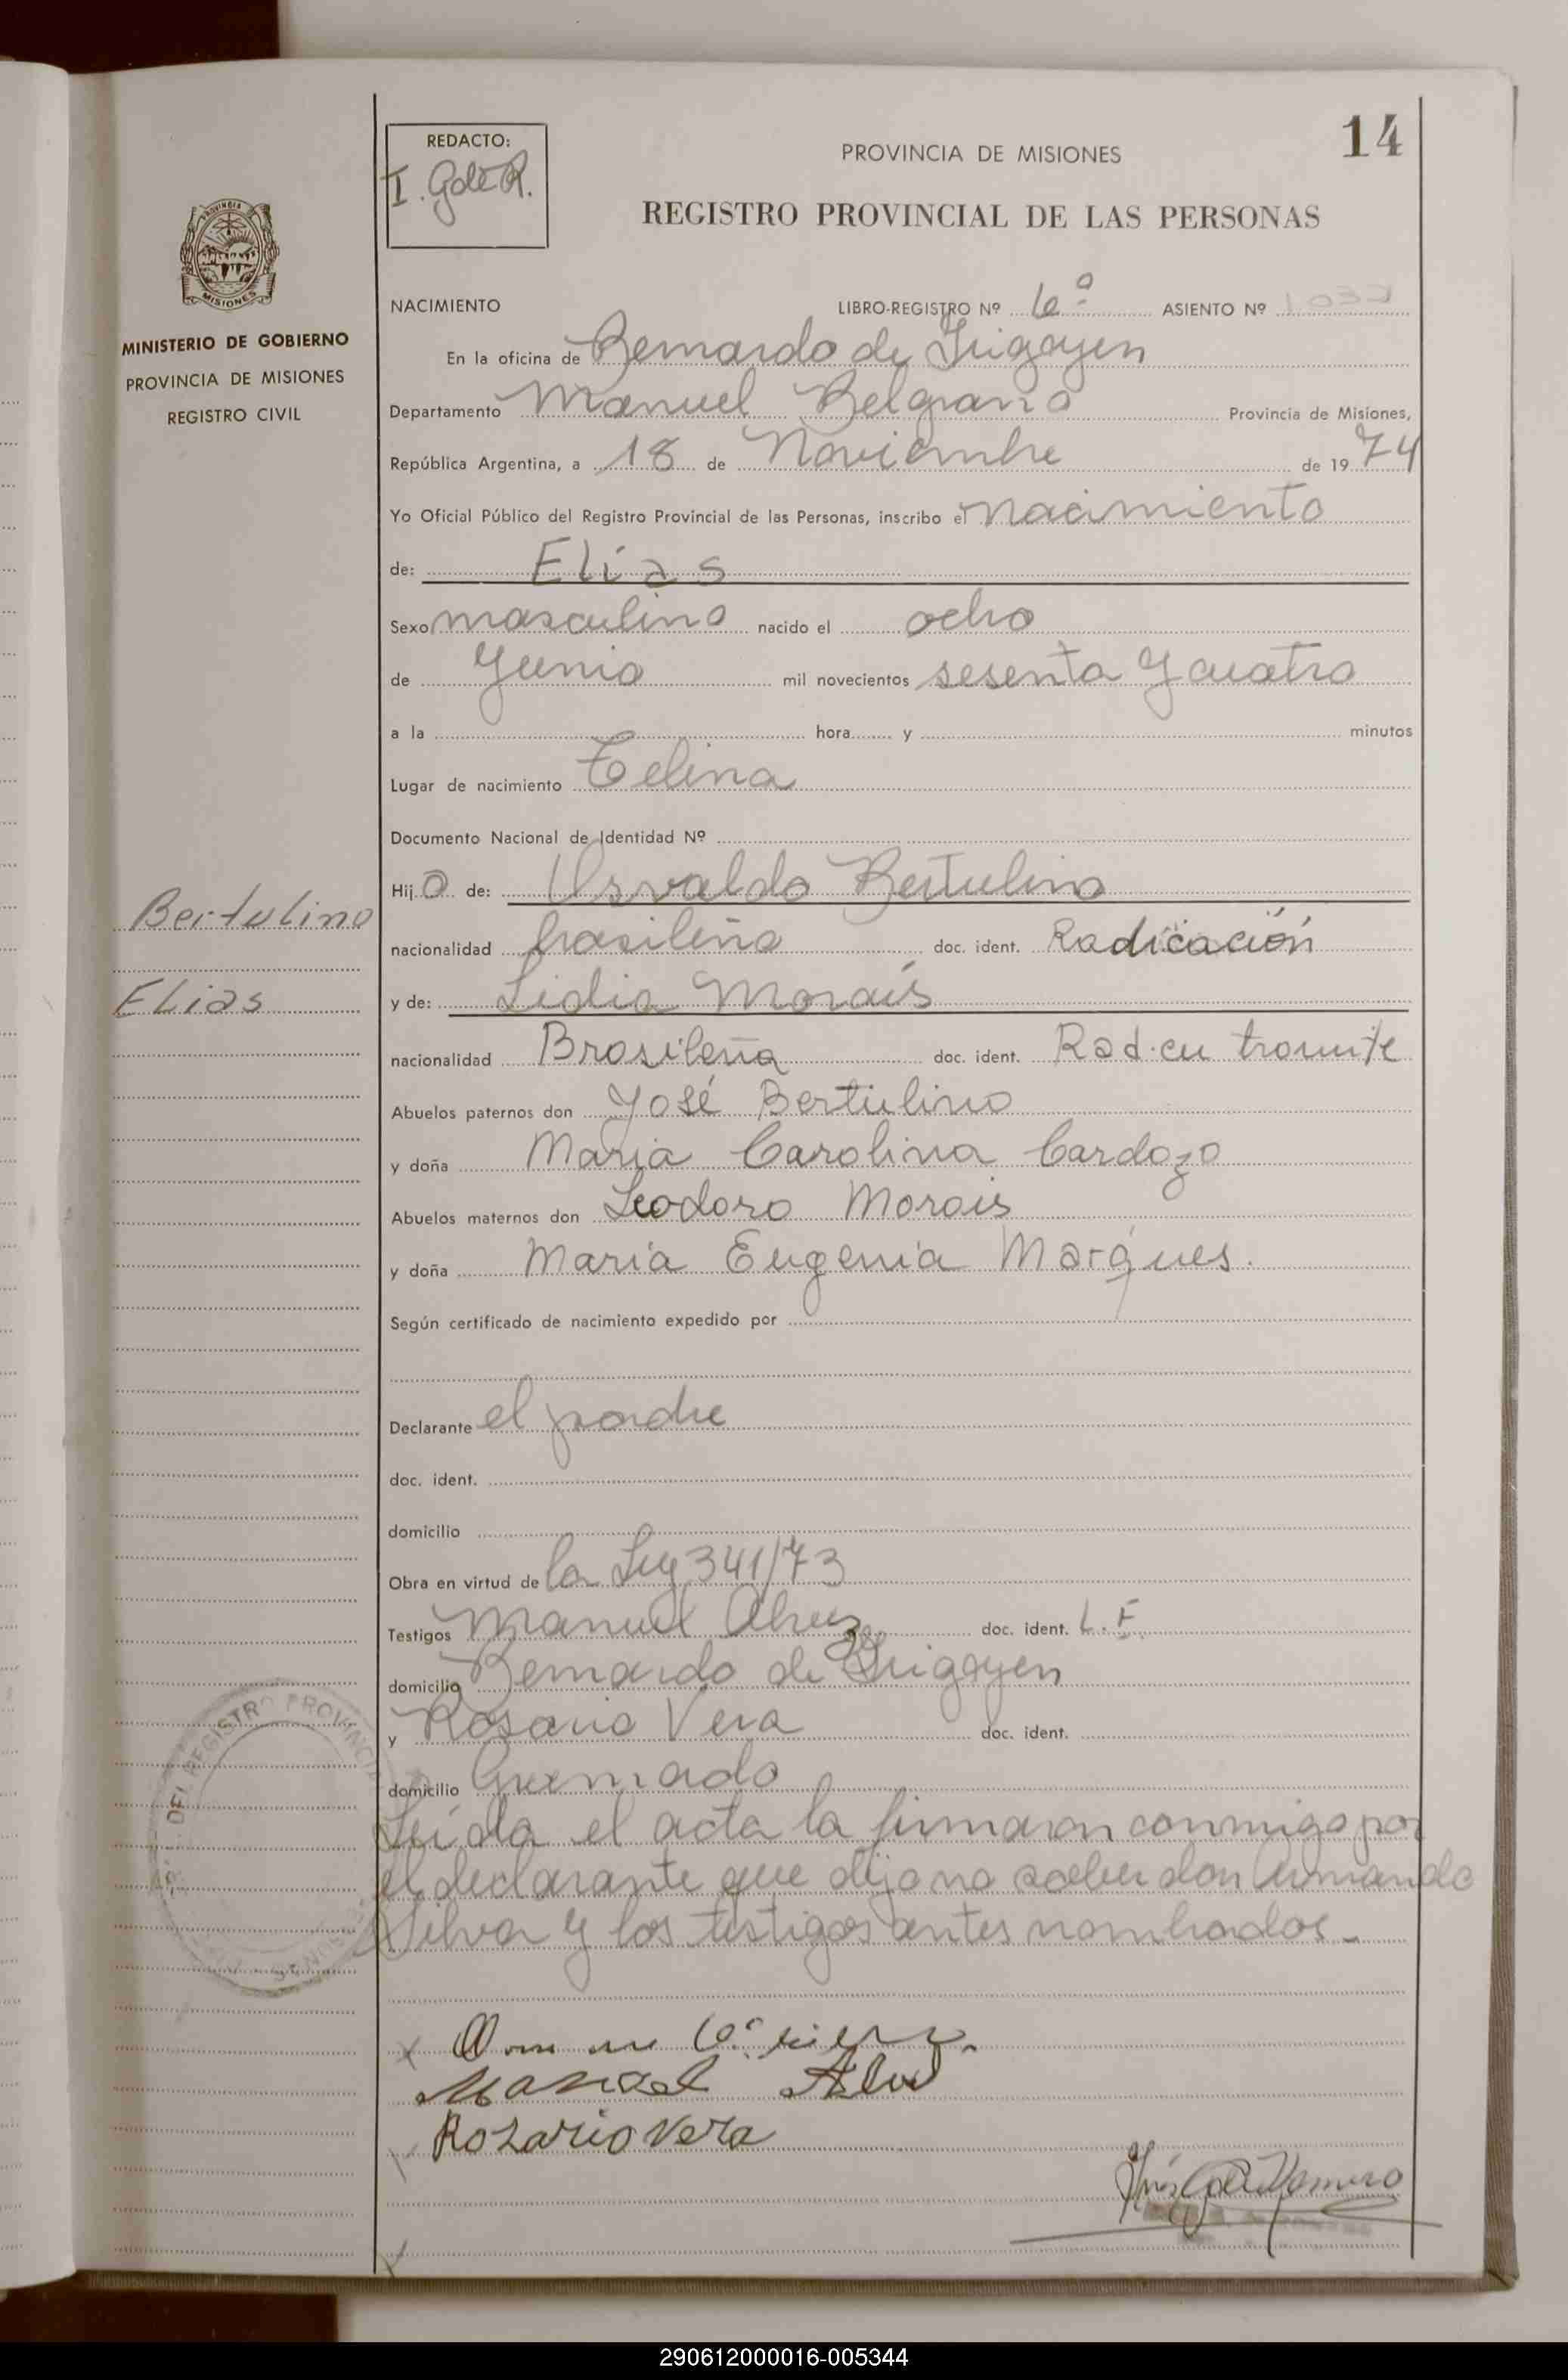 14
REDACTO:
I. Gdé R.
PROVINCIA DE MISIONES
REGISTRO PROVINCIAL DE LAS PERSONAS
MISIONES
MINISTERIO DE GOBIERNO
PROVINCIA DE MISIONES
REGISTRO CIVIL
NACIMIENTO LIBRO-REGISTRO Nº 6º ASIENTO Nº
En la oficina de Bernardo de Irigoyen
Departamento Manuel Belgrano Provincia de Misiones,
República Argentina, a 18 de Noviembre de 1974
Yo Oficial Público del Registro Provincial de las Personas, inscribo el nacimiento
de: Elías
Sexo masculino nacido el ocho
de Junio mil novecientos sesenta y cuatro
a la hora y minutos
Lugar de nacimiento
Documento Nacional de Identidad Nº
Bertulino
Hijo de: Osvaldo Bertulino
nacionalidad brasileño doc. ident. Radicación
Elias
y de: Lidia Morais
nacionalidad Brasileña doc. ident. Rad. en tramite
Abuelos paternos don José Bertulino
y doña Maria Carolina Cardozo
Abuelos maternos don Leodoro Morais
y doña Maria Eugenia Marques.
Según certificado de nacimiento expedido por
Declarante el padre
doc. ident.
domicilio
Obra en virtud de la Ley 341/73
Testigos Manuel doc. ident. L.E.
domicilio Bernardo de Irigoyen
y Rosario Vera doc. ident.
domicilio
Leída el acta la firmaron conmigo por
el declarante que dijo no saber don Armando
Silva y los testigos antes nombrados.-
DEL REGISTRO PROVINCIAL
Manuel
Rozario Vera
290612000016-005344